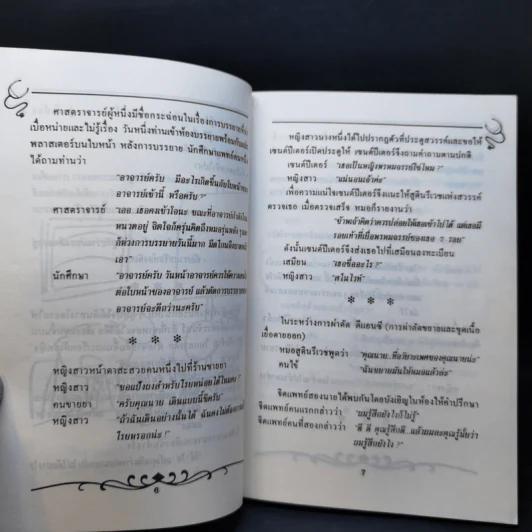 ศาสตราจารย์ผู้หนึ่งมีชื่อกระฉ่อนในเรื่องการบรรยายที่น่า
เบื่อหน่ายและไม่รู้เรื่อง วันหนึ่งท่านเข้าห้องบรรยายพร้อมกับแผ่น
พลาสเตอร์บนใบหน้า หลังการบรรยาย นักศึกษาแพทย์คนหนึ่ง
ได้ถามท่านว่า
"อาจารย์ครับ มีอะไรเกิดขึ้นกับใบหน้าของ
อาจารย์เช้านี้ หรือครับ?"
ศาสตราจารย์ "เออ เธอคงเข้าใจนะ ขณะที่อาจารย์กำลังโกน
หนวดอยู่ จิตใจก็ครุ่นคิดถึงหมอรุ่นหลัง
ถึงการบรรยายวันนี้มาก มีดโกนจึงบาดหน้า
เอา"
นักศึกษา "อาจารย์ครับ วันหน้าอาจารย์ควรให้ความสนใจ
ต่อใบหน้าของอาจารย์ แล้วตัดการบรรยาย
อาจารย์จะดีกว่านะครับ"
* * *
หญิงสาวหน้าตาสะสวยคนหนึ่งไปที่ร้านขายยา
หญิงสาว "ขอแป้งยงสำหรับโรยหน่อยได้ไหมคะ?"
คนขายยา "ครับคุณนาย เดินแบบนี้ซิครับ"
หญิงสาว "ถ้าฉันเดินอย่างนั้นได้ ฉันคงไม่ต้องการแป้ง
โรยหรอกน่ะ!"
6
หญิงสาวนางหนึ่งได้ไปปรากฏตัวที่ประตูสวรรค์และขอให้
เซนต์ปีเตอร์เปิดประตูให้ เซนต์ปีเตอร์จึงถามคำถามตามปกติ
เซนต์ปีเตอร์ "เธอเป็นหญิงพรหมจรรย์ใช่ไหม?"
หญิงสาว "แน่นอนเจ้าค่ะ"
เพื่อความแน่ใจเซนต์ปีเตอร์จึงแนะให้สูตินรีแพทย์แห่งสวรรค์
ตรวจเธอ เมื่อตรวจเสร็จ หมอก็รายงานว่า
"ข้าพเจ้าคิดว่าควรปล่อยให้เธอเข้าไปได้ แต่เธอมี
รอยเท้าที่เยื่อพรหมจรรย์ของเธอ 7 รอย"
ดังนั้นเซนต์ปีเตอร์จึงส่งเธอไปที่เสมียนลงทะเบียน
เสมียน "เธอชื่ออะไร?"
หญิงสาว "สโนไวท์"
* * *
ในระหว่างการผ่าตัด ดีแอนซี (การผ่าตัดขยายและขูดเนื้อ
เยื่อคายออก)
หมอสูตินรีเวชพูดว่า "คุณนาย..ที่อวัยวะเพศของคุณนายน่ะ"
คนไข้ "ฉันขยายมันให้หมอแล้วค่ะ"
จิตแพทย์สองนายได้พบกันโดยบังเอิญในห้องให้คำปรึกษา
จิตแพทย์คนแรกกล่าวว่า "ผมรู้สึกยังไงก็ไม่รู้"
จิตแพทย์คนที่สองกล่าวว่า "ดี ดี คุณรู้สึกดี..แล้วผมละคุณรู้มั้ยว่า
ผมรู้สึกยังไง?"
7